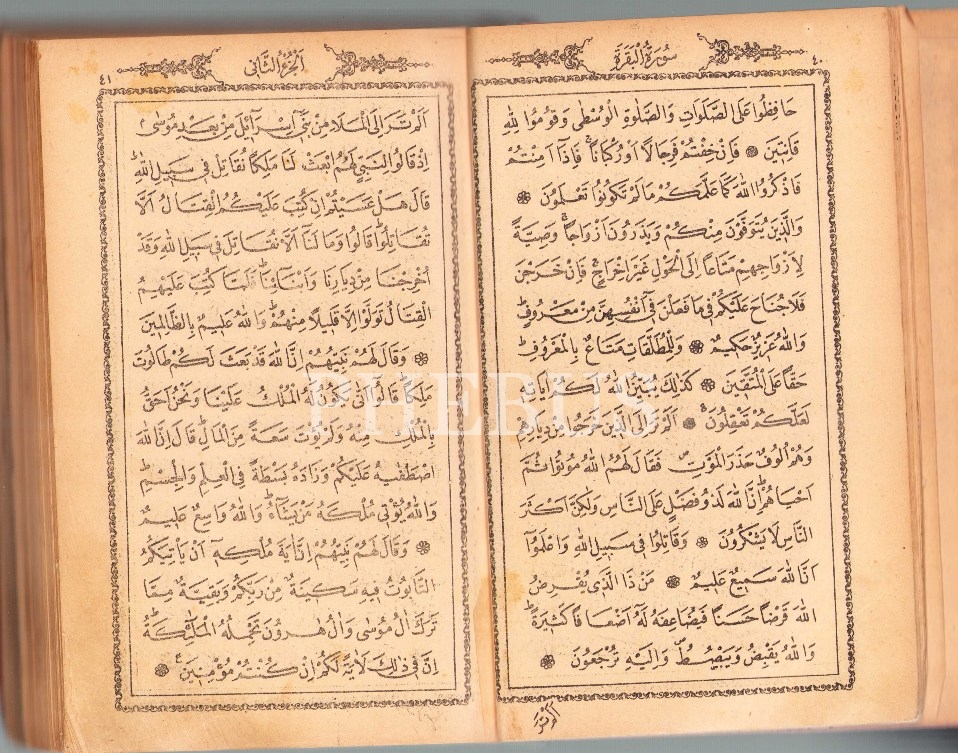 سورة البقرة
٤٠
حَافِظُوا عَلَى الصَّلَوَاتِ وَالصَّلٰوةِ الْوُسْطٰى وَقُومُوا لِلّٰهِ
قَانِتِينَ ۝ فَاِنْ خِفْتُمْ فَرِجَالًا اَوْ رُكْبَانًا ۚ فَاِذَا اَمِنْتُمْ
فَاذْكُرُوا اللّٰهَ كَمَا عَلَّمَكُمْ مَا لَمْ تَكُونُوا تَعْلَمُونَ ۝
وَالَّذِينَ يُتَوَفَّوْنَ مِنْكُمْ وَيَذَرُونَ اَزْوَاجًا ۚ وَصِيَّةً
لِاَزْوَاجِهِمْ مَتَاعًا اِلَى الْحَوْلِ غَيْرَ اِخْرَاجٍ ۚ فَاِنْ خَرَجْنَ
فَلَا جُنَاحَ عَلَيْكُمْ فِي مَا فَعَلْنَ فِي اَنْفُسِهِنَّ مِنْ مَعْرُوفٍ ۗ
وَاللّٰهُ عَزِيزٌ حَكِيمٌ ۝ وَلِلْمُطَلَّقَاتِ مَتَاعٌ بِالْمَعْرُوفِ ۗ
حَقًّا عَلَى الْمُتَّقِينَ ۝ كَذٰلِكَ يُبَيِّنُ اللّٰهُ لَكُمْ اٰيَاتِهِ
لَعَلَّكُمْ تَعْقِلُونَ ۝ اَلَمْ تَرَ اِلَى الَّذِينَ خَرَجُوا مِنْ دِيَارِهِمْ
وَهُمْ اُلُوفٌ حَذَرَ الْمَوْتِ ۖ فَقَالَ لَهُمُ اللّٰهُ مُوتُوا ثُمَّ
اَحْيَاهُمْ ۗ اِنَّ اللّٰهَ لَذُو فَضْلٍ عَلَى النَّاسِ وَلٰكِنَّ اَكْثَرَ
النَّاسِ لَا يَشْكُرُونَ ۝ وَقَاتِلُوا فِي سَبِيلِ اللّٰهِ وَاعْلَمُوا
اَنَّ اللّٰهَ سَمِيعٌ عَلِيمٌ ۝ مَنْ ذَا الَّذِي يُقْرِضُ
اللّٰهَ قَرْضًا حَسَنًا فَيُضَاعِفَهُ لَهُ اَضْعَافًا كَثِيرَةً ۗ
وَاللّٰهُ يَقْبِضُ وَيَبْصُطُ ۖ وَاِلَيْهِ تُرْجَعُونَ ۝
اَلَمْ تَرَ
الجزء الثاني
٤١
اَلَمْ تَرَ اِلَى الْمَلَاِ مِنْ بَنِي اِسْرَائِيلَ مِنْ بَعْدِ مُوسٰى ۘ
اِذْ قَالُوا لِنَبِيٍّ لَهُمُ ابْعَثْ لَنَا مَلِكًا نُقَاتِلْ فِي سَبِيلِ اللّٰهِ ۗ
قَالَ هَلْ عَسَيْتُمْ اِنْ كُتِبَ عَلَيْكُمُ الْقِتَالُ اَلَّا
تُقَاتِلُوا ۗ قَالُوا وَمَا لَنَا اَلَّا نُقَاتِلَ فِي سَبِيلِ اللّٰهِ وَقَدْ
اُخْرِجْنَا مِنْ دِيَارِنَا وَاَبْنَائِنَا ۗ فَلَمَّا كُتِبَ عَلَيْهِمُ
الْقِتَالُ تَوَلَّوْا اِلَّا قَلِيلًا مِنْهُمْ ۗ وَاللّٰهُ عَلِيمٌ بِالظَّالِمِينَ
۝ وَقَالَ لَهُمْ نَبِيُّهُمْ اِنَّ اللّٰهَ قَدْ بَعَثَ لَكُمْ طَالُوتَ
مَلِكًا ۗ قَالُوا اَنّٰى يَكُونُ لَهُ الْمُلْكُ عَلَيْنَا وَنَحْنُ اَحَقُّ
بِالْمُلْكِ مِنْهُ وَلَمْ يُؤْتَ سَعَةً مِنَ الْمَالِ ۗ قَالَ اِنَّ اللّٰهَ
اصْطَفٰيهُ عَلَيْكُمْ وَزَادَهُ بَسْطَةً فِي الْعِلْمِ وَالْجِسْمِ ۗ
وَاللّٰهُ يُؤْتِي مُلْكَهُ مَنْ يَشَاءُ ۗ وَاللّٰهُ وَاسِعٌ عَلِيمٌ
۝ وَقَالَ لَهُمْ نَبِيُّهُمْ اِنَّ اٰيَةَ مُلْكِهِ اَنْ يَأْتِيَكُمُ
التَّابُوتُ فِيهِ سَكِينَةٌ مِنْ رَبِّكُمْ وَبَقِيَّةٌ مِمَّا
تَرَكَ اٰلُ مُوسٰى وَاٰلُ هٰرُونَ تَحْمِلُهُ الْمَلٰئِكَةُ ۗ
اِنَّ فِي ذٰلِكَ لَاٰيَةً لَكُمْ اِنْ كُنْتُمْ مُؤْمِنِينَ ۝
PHEBUS